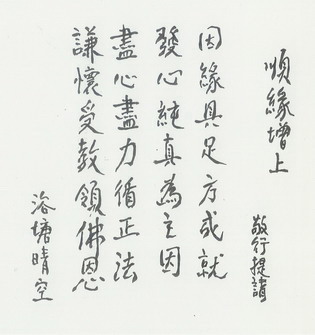 順緣增上
敬行提請
因緣具足方成就
發心純真為主因
盡心盡力循正法
謙懷受教領佛恩
浴塘晴空